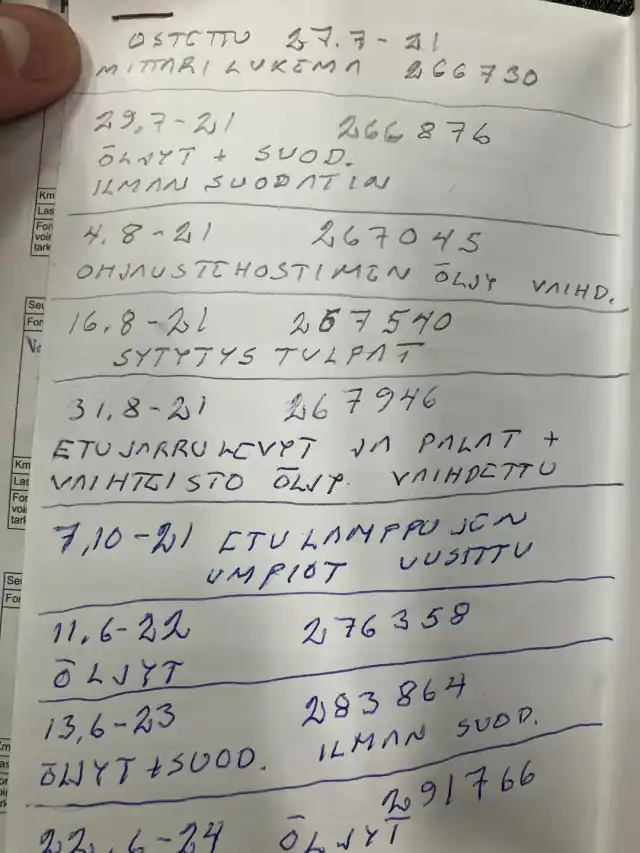 OSTETTU 27.7-21
MITTARI LUKEMA 266730
29,7-21 266876
ÖLJYT + SUOD.
ILMAN SUODATIN
4,8-21 267045
OHJAUSTEHOSTIMEN ÖLJY VAIHD.
16,8-21 267540
SYTYTYS TULPAT
31,8-21 267946
ETUJARRULEVYT JA PALAT +
VAIHTEISTO ÖLJY. VAIHDETTU
7,10-21 ETULAMPPUJEN
UMPIOT UUSITTU
11,6-22 276358
ÖLJYT
13,6-23 283864
ÖLJYT + SUOD. ILMAN SUOD.
291766
22,6-24 ÖLJYT
Km
Las
For
voir
tark
Seu
For
Km
Las
For
voi
tark
Se
For